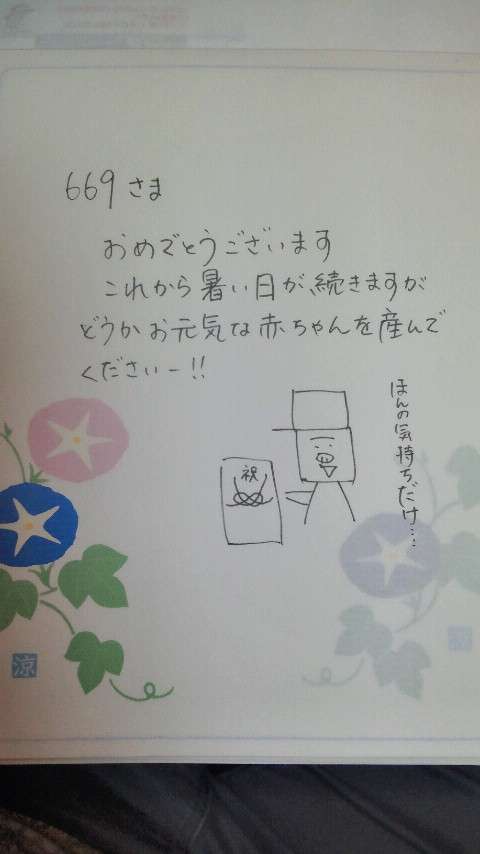 669さま
おめでとうございます
これから暑い日が、続きますが
どうかお元気な赤ちゃんを産んで
くださいー!!
ほんの気持ちだけ…
祝
涼